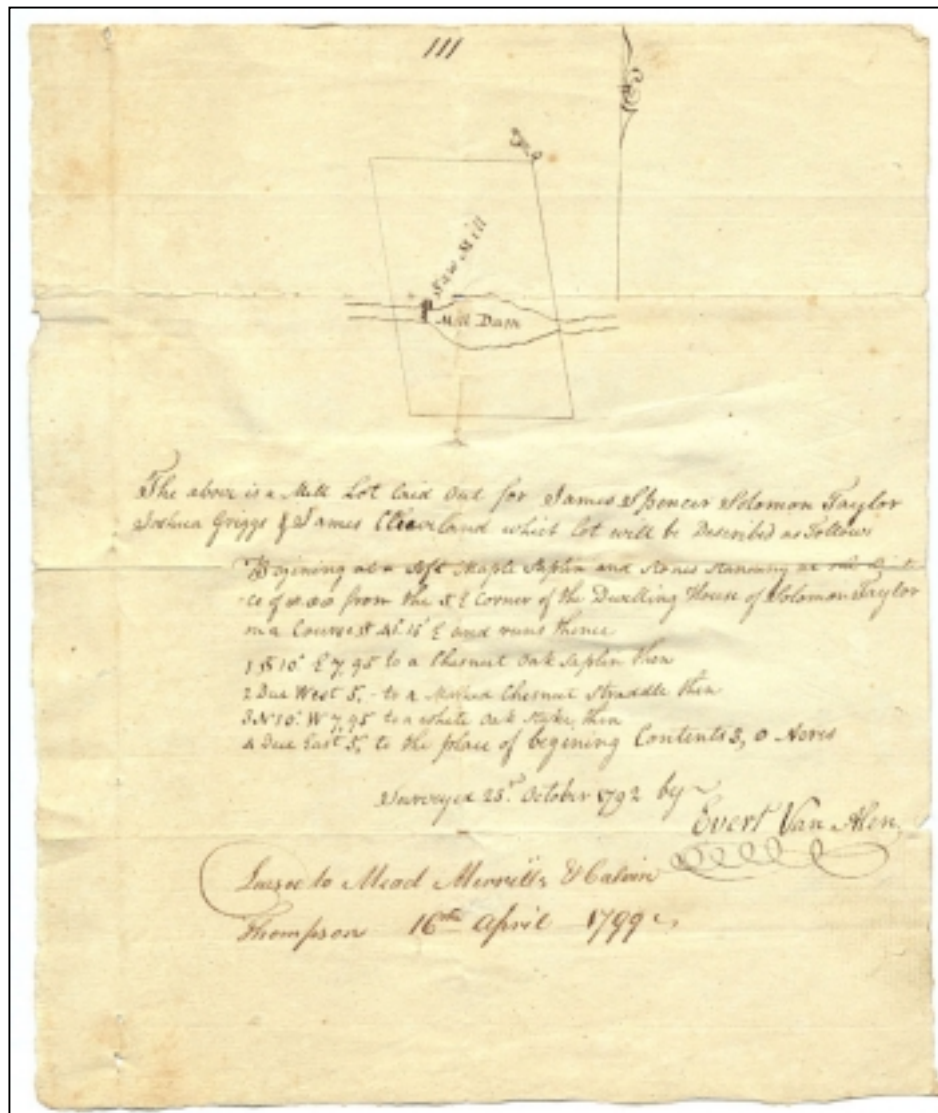 111
Saw Mill
Mill Dam
The above is a Mill Lot laid out for James Spencer Solomon Taylor
Joshua Griggs & James Cleaveland which lot will be Described as Follows
Begining at a Soft Maple Saplin and Stones Standing at
of from the S E Corner of the Dwelling House of Solomon Taylor
on a Course S E and runs thence
1 S 10° E 7,95 to a Chesnut Oak Saplin then
2 Due West 5,- to a Marked Chesnut Straddle then
3 N 10° W 7,95 to a white Oak then
4 Due East 5, to the place of begining Contents 3, 0 Acres
Surveyed 23d October 1792 by
Evert Van Alen
to Mead Merrills & Calvin
Thompson 16th April 1799